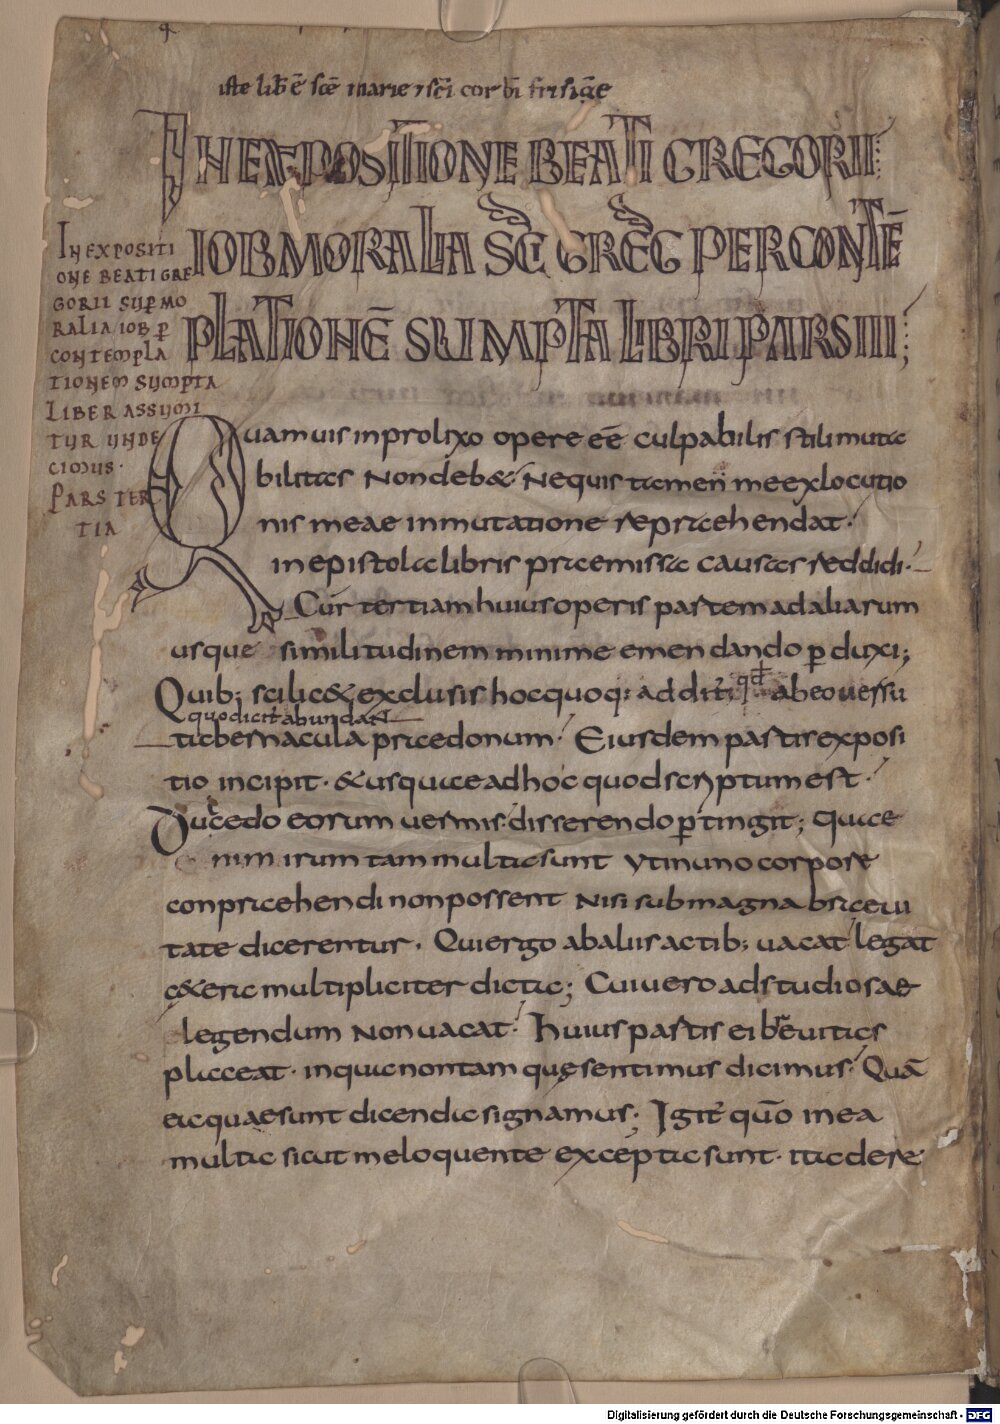 iste lib̄ ē scē marie ⁊ sc̄i corb̄i frisīge
IN EXPOSITIONE BEATI GREGORII
IOB MORALIA SC̄I GREG PER CONTĒ
PLATIONĒ SUMPTA LIBRI PARS III;
IN EXPOSITI
ONE BEATI GRE
GORII SUP MO
RALIA IOB P
CONTEMPLA
TIONEM SUMPTA
LIBER ASSUMI
TUR UNDE
CIMUS·
PARS TER
TIA
Quamuis in prolixo opere eē culpabilis stili muta
bilitas Non deb& Nequis tamen me ex locutio
nis meae inmutatione reprehendat.
in epistolae libris praemissa causas reddidi.
Cur tertiam huius operis partem ad aliarum
usque similitudinem minime emendando p duxi;
Quib; scilic& exclusis hoc quoq: additr̄ qd ab eo uersu
quo dicit abundant
tabernacula praedonum. Eiusdem partis exposi
tio incipit. & usquae ad hoc quod scriptum est.
Dulcedo eorum uermis. disserendo ptingit; quae
nimirum tam multa sunt ut in uno corpore
conpraehendi non possent Nisi sub magna braeui
tate dicerentur. Qui ergo ab aliis actib; uacat legat
c&era multipliciter dicta; Cui uero ad studiosae
legendum Non uacat. huius partis ei breuitas
placeat. in qua non tam quę sentimus dicimus. Quā
ea quae sunt dicenda signamus; Igit̄ quō in ea
multa sicut me loquente excepta sunt. ita dere
Digitalisierung gefördert durch die Deutsche Forschungsgemeinschaft - DFG